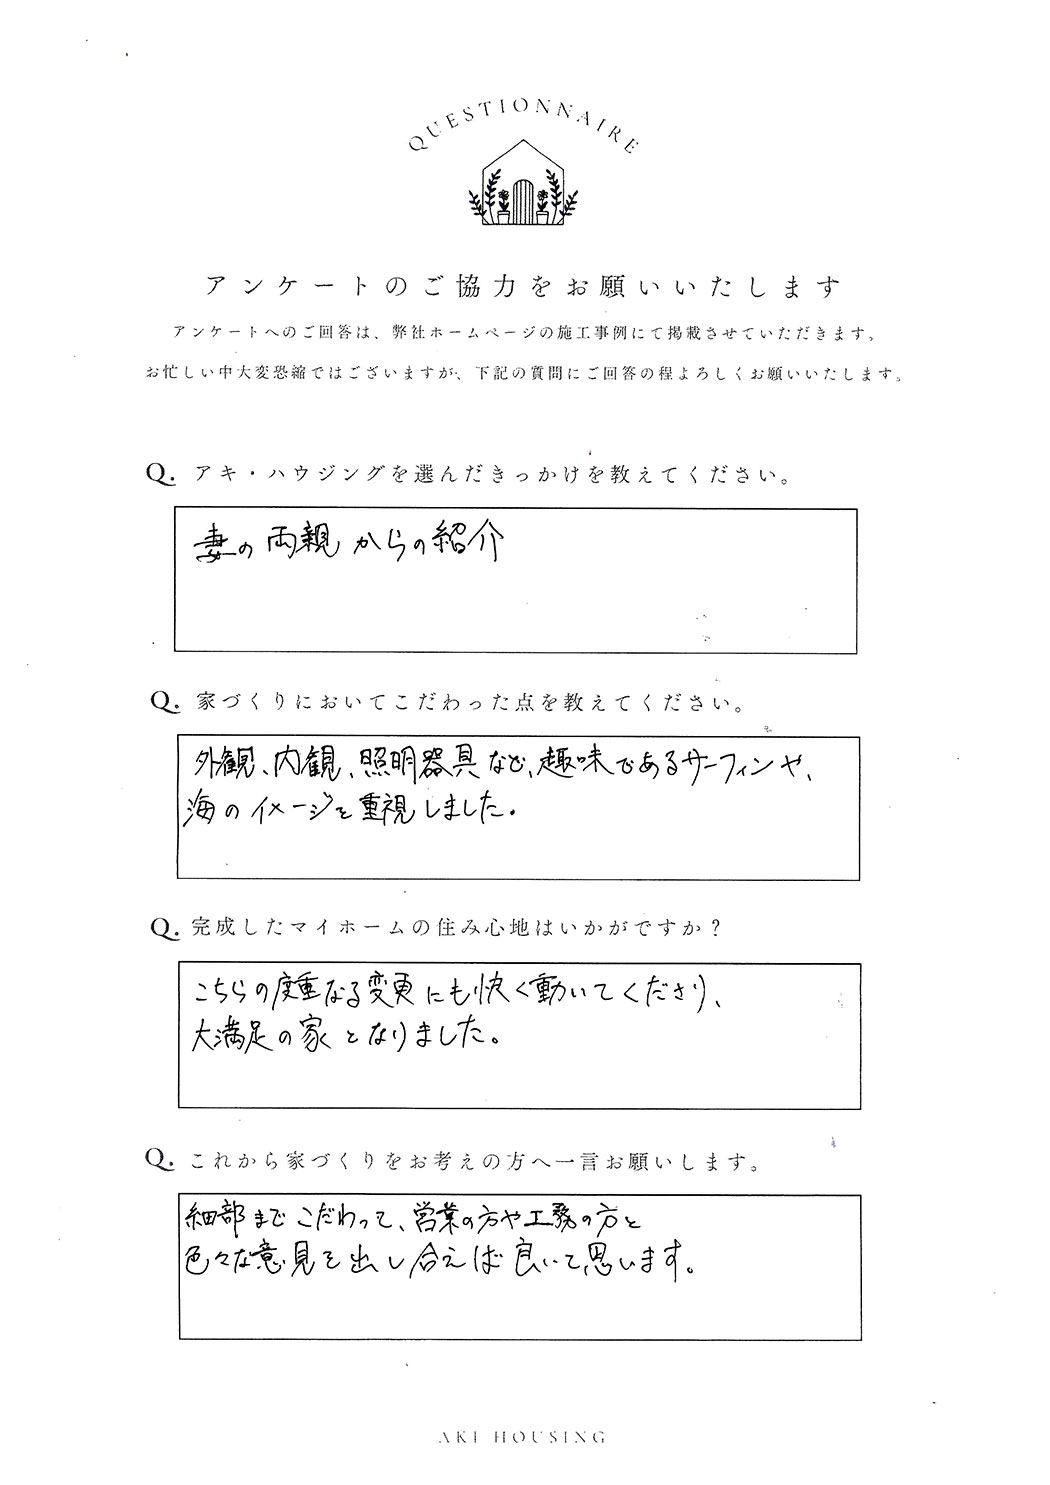 QUESTIONNAIRE
アンケートのご協力をお願いいたします
アンケートへのご回答は、弊社ホームページの施工事例にて掲載させていただきます。
お忙しい中大変恐縮ではございますが、下記の質問にご回答の程よろしくお願いいたします。
Q. アキ・ハウジングを選んだきっかけを教えてください。
妻の両親からの紹介
Q. 家づくりにおいてこだわった点を教えてください。
外観、内観、照明器具など、趣味であるサーフィンや、
海のイメージを重視しました。
Q. 完成したマイホームの住み心地はいかがですか？
こちらの度重なる変更にも快く動いてくださり、
大満足の家となりました。
Q. これから家づくりをお考えの方へ一言お願いします。
細部までこだわって、営業の方や工務の方と
色々な意見を出し合えば良いと思います。
AKI HOUSING